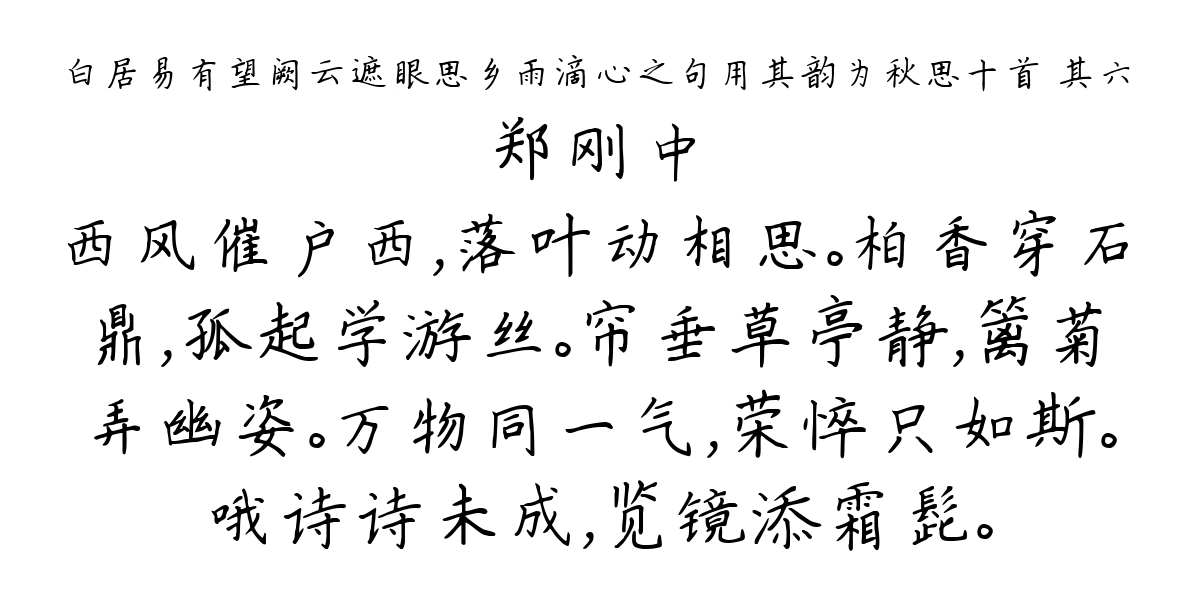 白居易有望阙云遮眼思乡雨滴心之句用其韵为秋思十首 其六
郑刚中
西风催户西,落叶动相思。柏香穿石
鼎,孤起学游丝。帘垂草亭静,篱菊
弄幽姿。万物同一气,荣悴只如斯。
哦诗诗未成,览镜添霜髭。